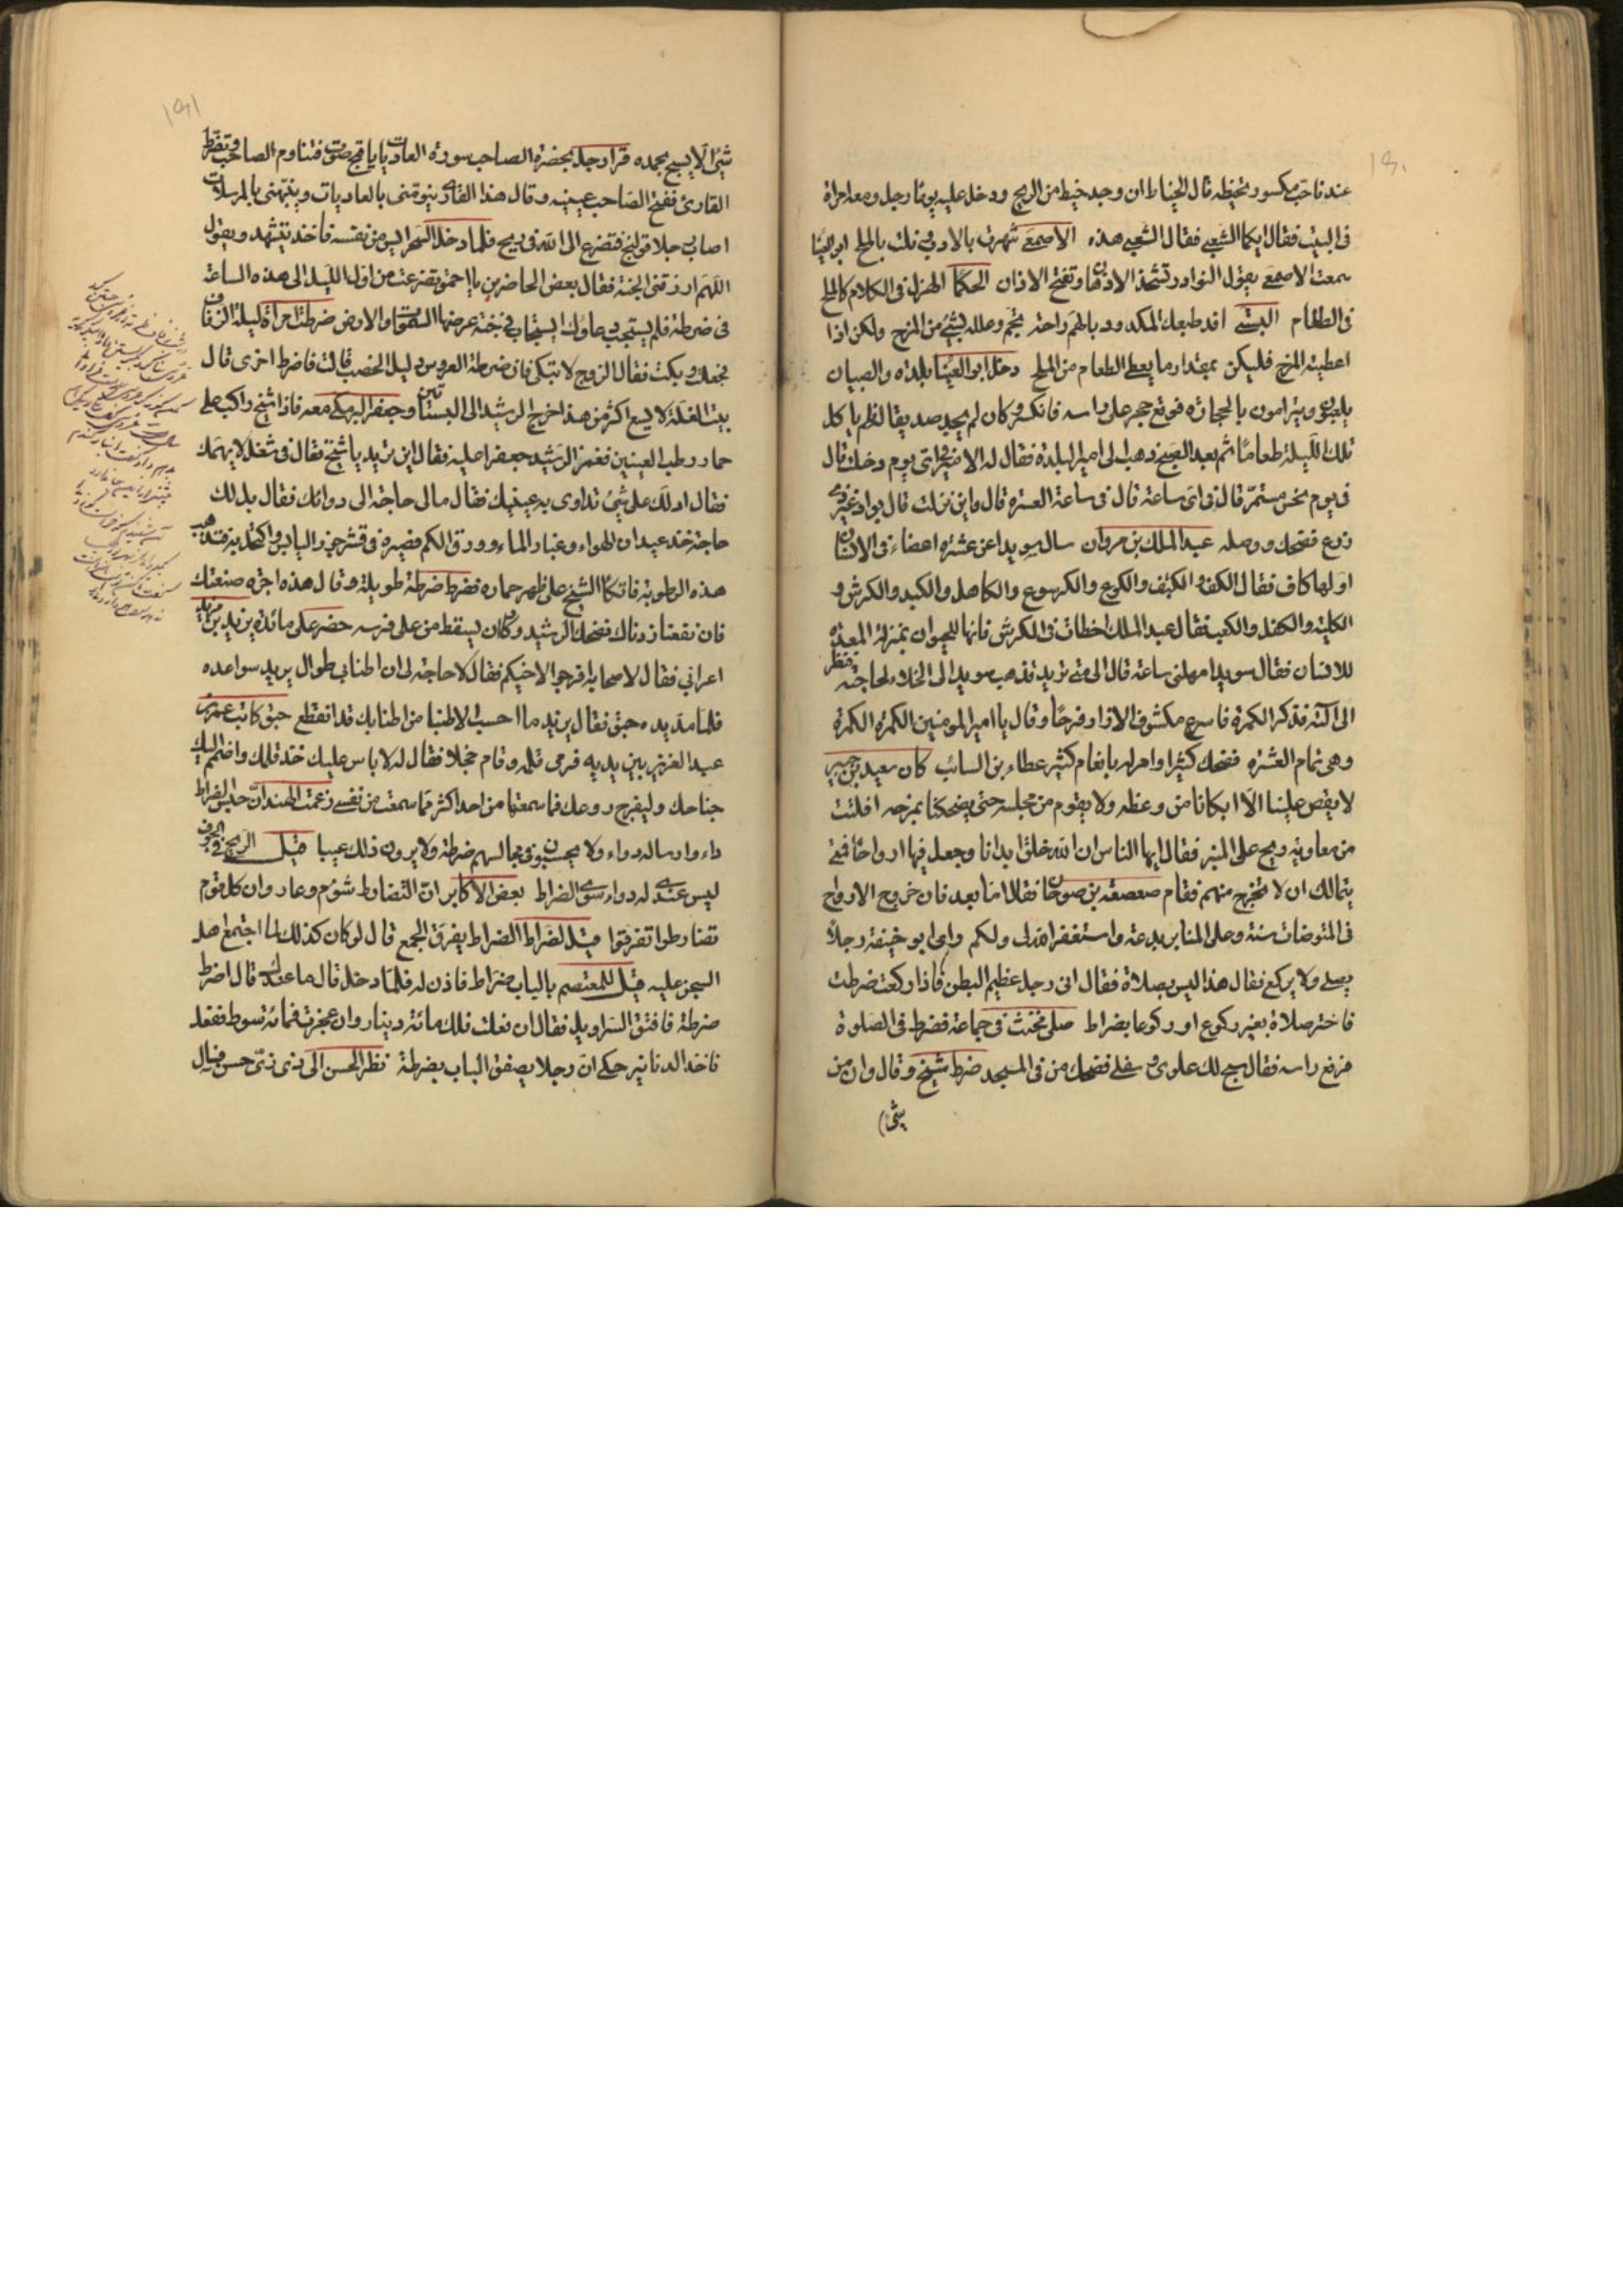 ١٩٠
عند ناحب مكسور تخيطه قال الخياط ان وجد خيط من الريح ودخل عليه يوما رجل ومعه امراة
فى البيت فقال ايكما الشعبي فقال الشعبي هذه الاصمعى شهرت بالادب ونلت بالملح ابو العينا
سمعت الاصمعى يقول النوادر تشحذ الاذهان وتفتح الاذان الحكما الهزل فى الكلام كالملح
فى الطعام البستى افد طبعك المكدود بالهم راحة تجم وعلله بشئ من المزح ولكن اذا
اعطيته المزح فليكن بمقدار ما يعطى الطعام من الملح دخل ابو العينا بلده والصبيان
يلعبون ويترامون بالحجارة فوقع حجر على راسه فانكسر وكان لم يجد صديقا لم ياكل
تلك الليلة طعاما ثم بعد الصبح ذهب الى امير البلدة فقال له الامير فى اى يوم دخلت قال
فى يوم نحس مستمر قال فى اى ساعة قال فى ساعة العسرة قال واين نزلت قال بواد غير ذى
زرع فضحك ووصله عبد الملك بن مروان سال سويدا عن عشرة اعضاء فى الانسان
اولها كاف فقال الكف والكتف والكوع والكرسوع والكاهل والكبد والكرش و
الكلية والكفل والكعب فقال عبد الملك اخطات فى الكرش فانها للحيوان بمنزلة المعدة
للانسان فقال سويد امهلنى ساعة قال الى متى تريد تذهب سويد الى الخلاء لحاجته فنظر
الى آلته فذكر الكمرة فاسرع مكشوف الازار وفرحا وقال يا امير المومنين الكمرة الكمرة
وهى تمام العشرة فضحك كثيرا وامر له بانعام كثير عطاء بن السائب كان سعيد بن جبير
لا يقص علينا الا ابكانا من وعظه ولا يقوم من مجلسه حتى يضحكنا بمزحه افلتت
من معاوية ريح على المنبر فقال ايها الناس ان الله خلق ابدانا وجعل فيها ارواحا فمتى
يتمالك ان لا تخرج منهم فقام صعصعة بن صوحان فقال اما بعد فان خروج الارواح
فى المتوضات سنة وعلى المنابر بدعة واستغفر الله لى ولكم راى ابو حنيفة رجلا
يصلى ولا يركع فقال هذا ليس بصلاة فقال انى رجل عظيم البطن فاذا ركعت ضرطت
فاختر صلاة بغير ركوع او ركوعا بضراط صلى مخنث فى جماعة فضرط فى الصلوة
فرفع راسه فقال سبح لك علوى وسفلى فضحك من فى المسجد ضرط شيخ وقال وان من
شئ
١٩١
شئ الا يسبح بحمده قرا رجل بحضرة الصاحب سورة العاديات باقبح صوت فتناوم الصاحب وتضرط
القارئ ففتح الصاحب عينيه وقال هذا القارى ينومنى بالعاديات وينبهنى بالمرسلات
اصاب رجلا قولنج فتضرع الى الله فى ريح فلما دخل السحر ايس من نفسه فاخذ يتشهد ويقول
اللهم ارزقنى الجنة فقال بعض الحاضرين يا احمق تضرعت من اول الليل الى هذه الساعة
فى ضرطة فلم يستجب دعاؤك ايستجاب فى جنة عرضها السموات والارض ضرطت امراة ليلة الزفاف
فخجلت وبكت فقال الزوج لا تبكى فان ضرطة العروس دليل الخصب قالت فاضرط اخرى قال
بيت الغلة لا يسع اكثر من هذا خرج الرشيد الى البستان وجعفر البرمكى معه فاذا شيخ راكب على
حمار رطب العينين فغمز الرشيد جعفرا عليه فقال اين تريد يا شيخ فقال فى شغل لا يهمك
فقال ادلك على شئ تداوى به عينيك فقال مالى حاجة الى دوائك فقال بل لك
حاجة خذ عيدان الهواء وغبار الماء وورق الكمم فصيره فى قشر جوز واكتحل به فتذهب
هذه الرطوبة فاتكا الشيخ على ظهر حماره فضرط ضرطة طويلة وقال هذه اجرة صنعتك
فان نفعنا زدناك فضحك الرشيد وكان يسقط من على فرسه حضر على مائدة يزيد بن مزيد
اعرابى فقال لاصحابه افرجوا لاخيكم فقال لا حاجة لى ان اطنابى طوال يريد سواعده
فلما مد يده حبق فقال يزيد ما احسب الا طنبا من اطنابك قد انقطع حبق كاتب عمر بن
عبد العزيز بين يديه فرمى قلمه وقام خجلا فقال له لا باس عليك خذ قلمك واضمم اليك
جناحك وليفرج روعك فما سمعتها من احد اكثر مما سمعت من نفسى زعمت الهند ان حبس الضراط
داء وارساله دواء ولا يحبسون فى مجالسهم ضرطة ولا يرون ذلك عيبا قيل الريح فى الجوف
ليس عندى له دواء سوى الضراط بعض الاكابر ان التضارط شوم وعار وان كل قوم
تضارطوا تفرقوا قيل لضراط الضراط يفرق الجمع قال لو كان كذلك لما اجتمع اهل
السجن عليه قيل للمعتصم بالباب ضراط فاذن له فلما دخل قال ما عندك قال اضرط
ضرطة فافتق السراويل فقال ان فعلت فلك مائة دينار وان عجزت فمائة سوط ففعل
فاخذ الدنانير حكى ان رجلا يصفق الباب بضرطة نظر الحسن الى ذى زى حسن فسال